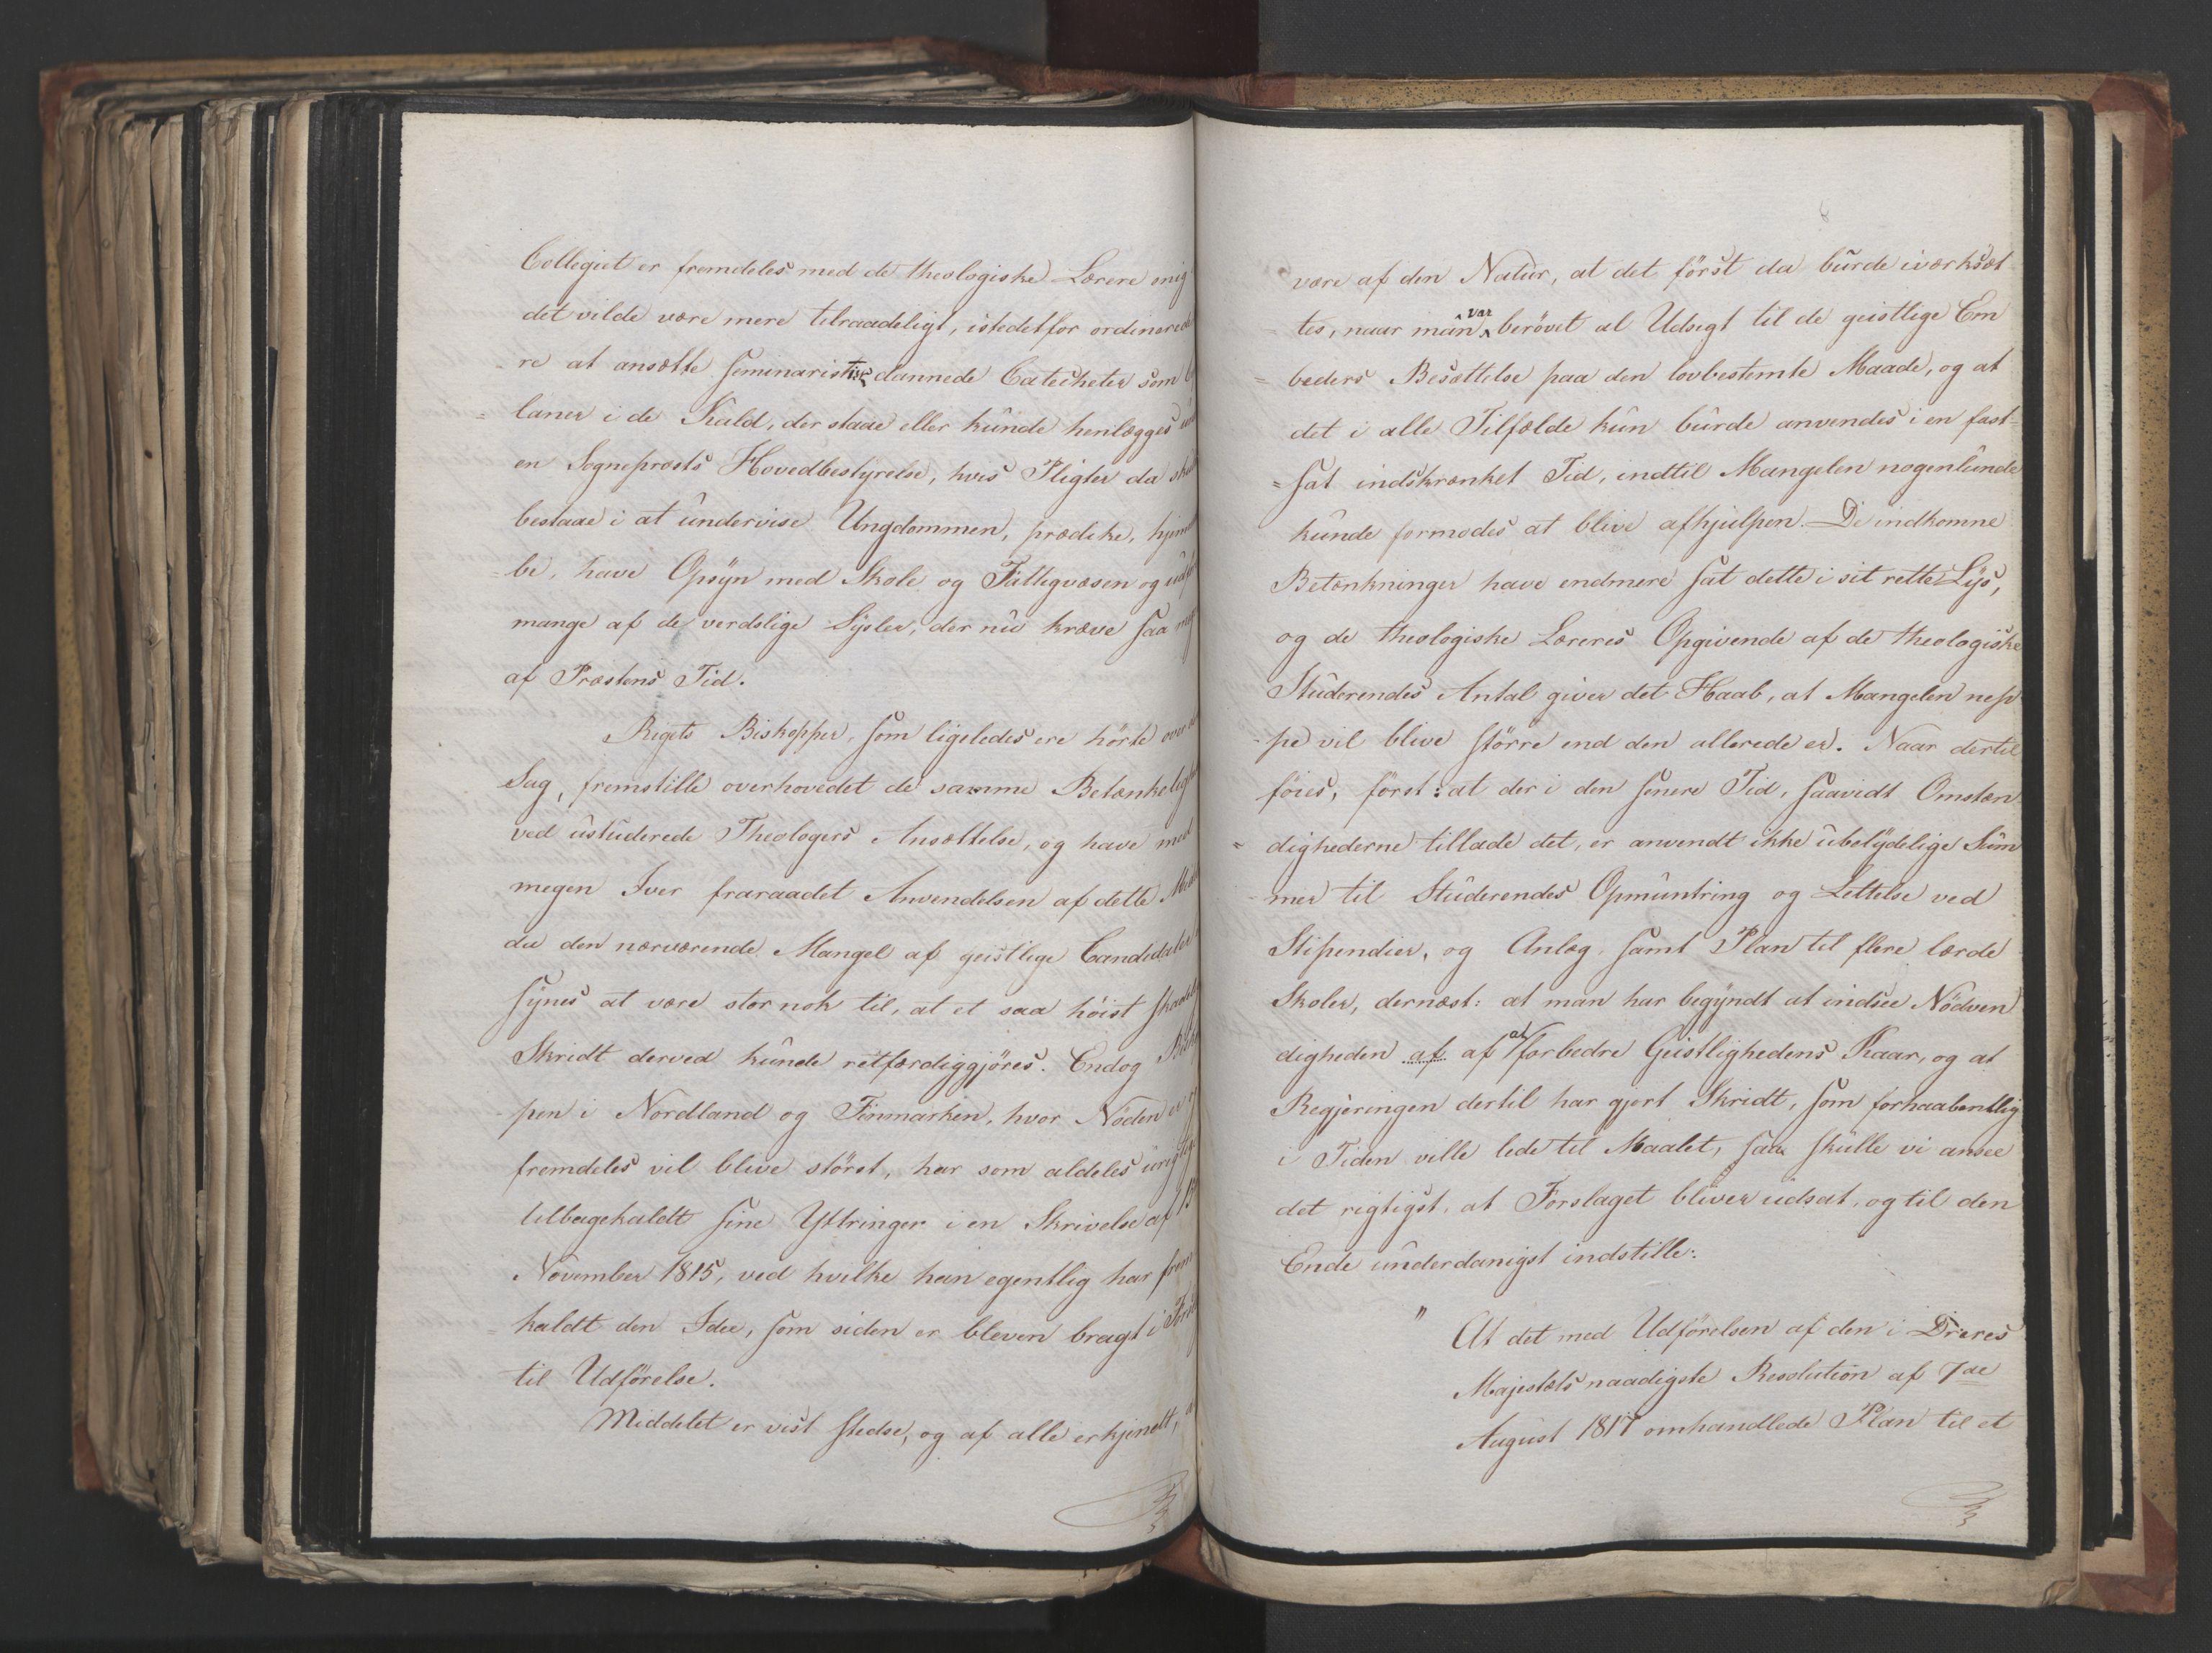 Collegiet er fremdeles med de theologiske Lærere enig
det vilde være mere tilraadeligt, istedetfor ordinerede
re at ansætte seminaristisk dannede Catecheter som
laner i de Kald, der staae eller kunde henlægges
en Sogneprests Hovedbestyrelse, hvis Pligter da
bestaae i at undervise Ungdommen, prædike,
be, have Opsyn med Skole og Fattigvæsen og
mange af de verdslige Sysler, der nu kræve saa
af Præstens Tid.
Rigets Biskopper, som ligeledes ere hørte over
Sag, fremstille overhovedet de samme
ved ustuderede Theologers Ansættelse, og have med
megen Iver fraraadet Anvendelsen af dette
da den nærværende Mangel af geistlige Candidater
synes at være stor nok til, at et saa høist
Skridt derved kunde retfærdiggjøres. Endog
pen i Nordland og Finmarken, hvor Nöden er
fremdeles vil blive störst, har som aldeles
tilbagekaldt sine Yttringer i en Skrivelse af
November 1815, ved hvilke han egentlig har frem
=kaldt den Idee, som siden er bleven bragt i
til Udförelse.
Middelet er vist stedse, og af alle erkjendt,
være af den Natur, at det först da burde iværksæt
tes, naar man var berövet al Udsigt til de geistlige Em
=beders Besættelse paa den lovbestemte Maade, og at
det i alle Tilfælde kun burde anvendes i en fast=
=sat indskrænket Tid, indtil Mangelen nogenlunde
kunde formodes at blive afhjulpen. De indkomne
Betænkninger have endmere sat dette i sit rette Lys,
og de theologiske Læreres Opgivende af de theologiske
Studerendes Antal giver det Haab, at Mangelen nep
-pe vil blive större end den allerede er. Naar dertil
föies, först: at der i den senere Tid, saavidt Omstæn
=dighederne tillade det, er anvendt ikke ubetydelige Sum
-mer til Studerendes Opmuntring og Lettelse ved
Stipendier, og Anlæg samt Plan til flere lærde
Skoler, dernæst: at man har begyndt at indsee Nödven
digheden af af at forbedre Geistlighedens Kaar, og at
Regjeringen dertil har gjort Skridt, som forhaabentlig
i Tiden ville lede til Maalet, saa skulle vi ansee
det rigtigst, at Forslaget bliver udsat, og til den
Ende underdanigst indstille:
" At det med Udförelsen af den i Deres
Majestæts naadigste Resolution af 7de
August 1817 omhandlede Plan til et